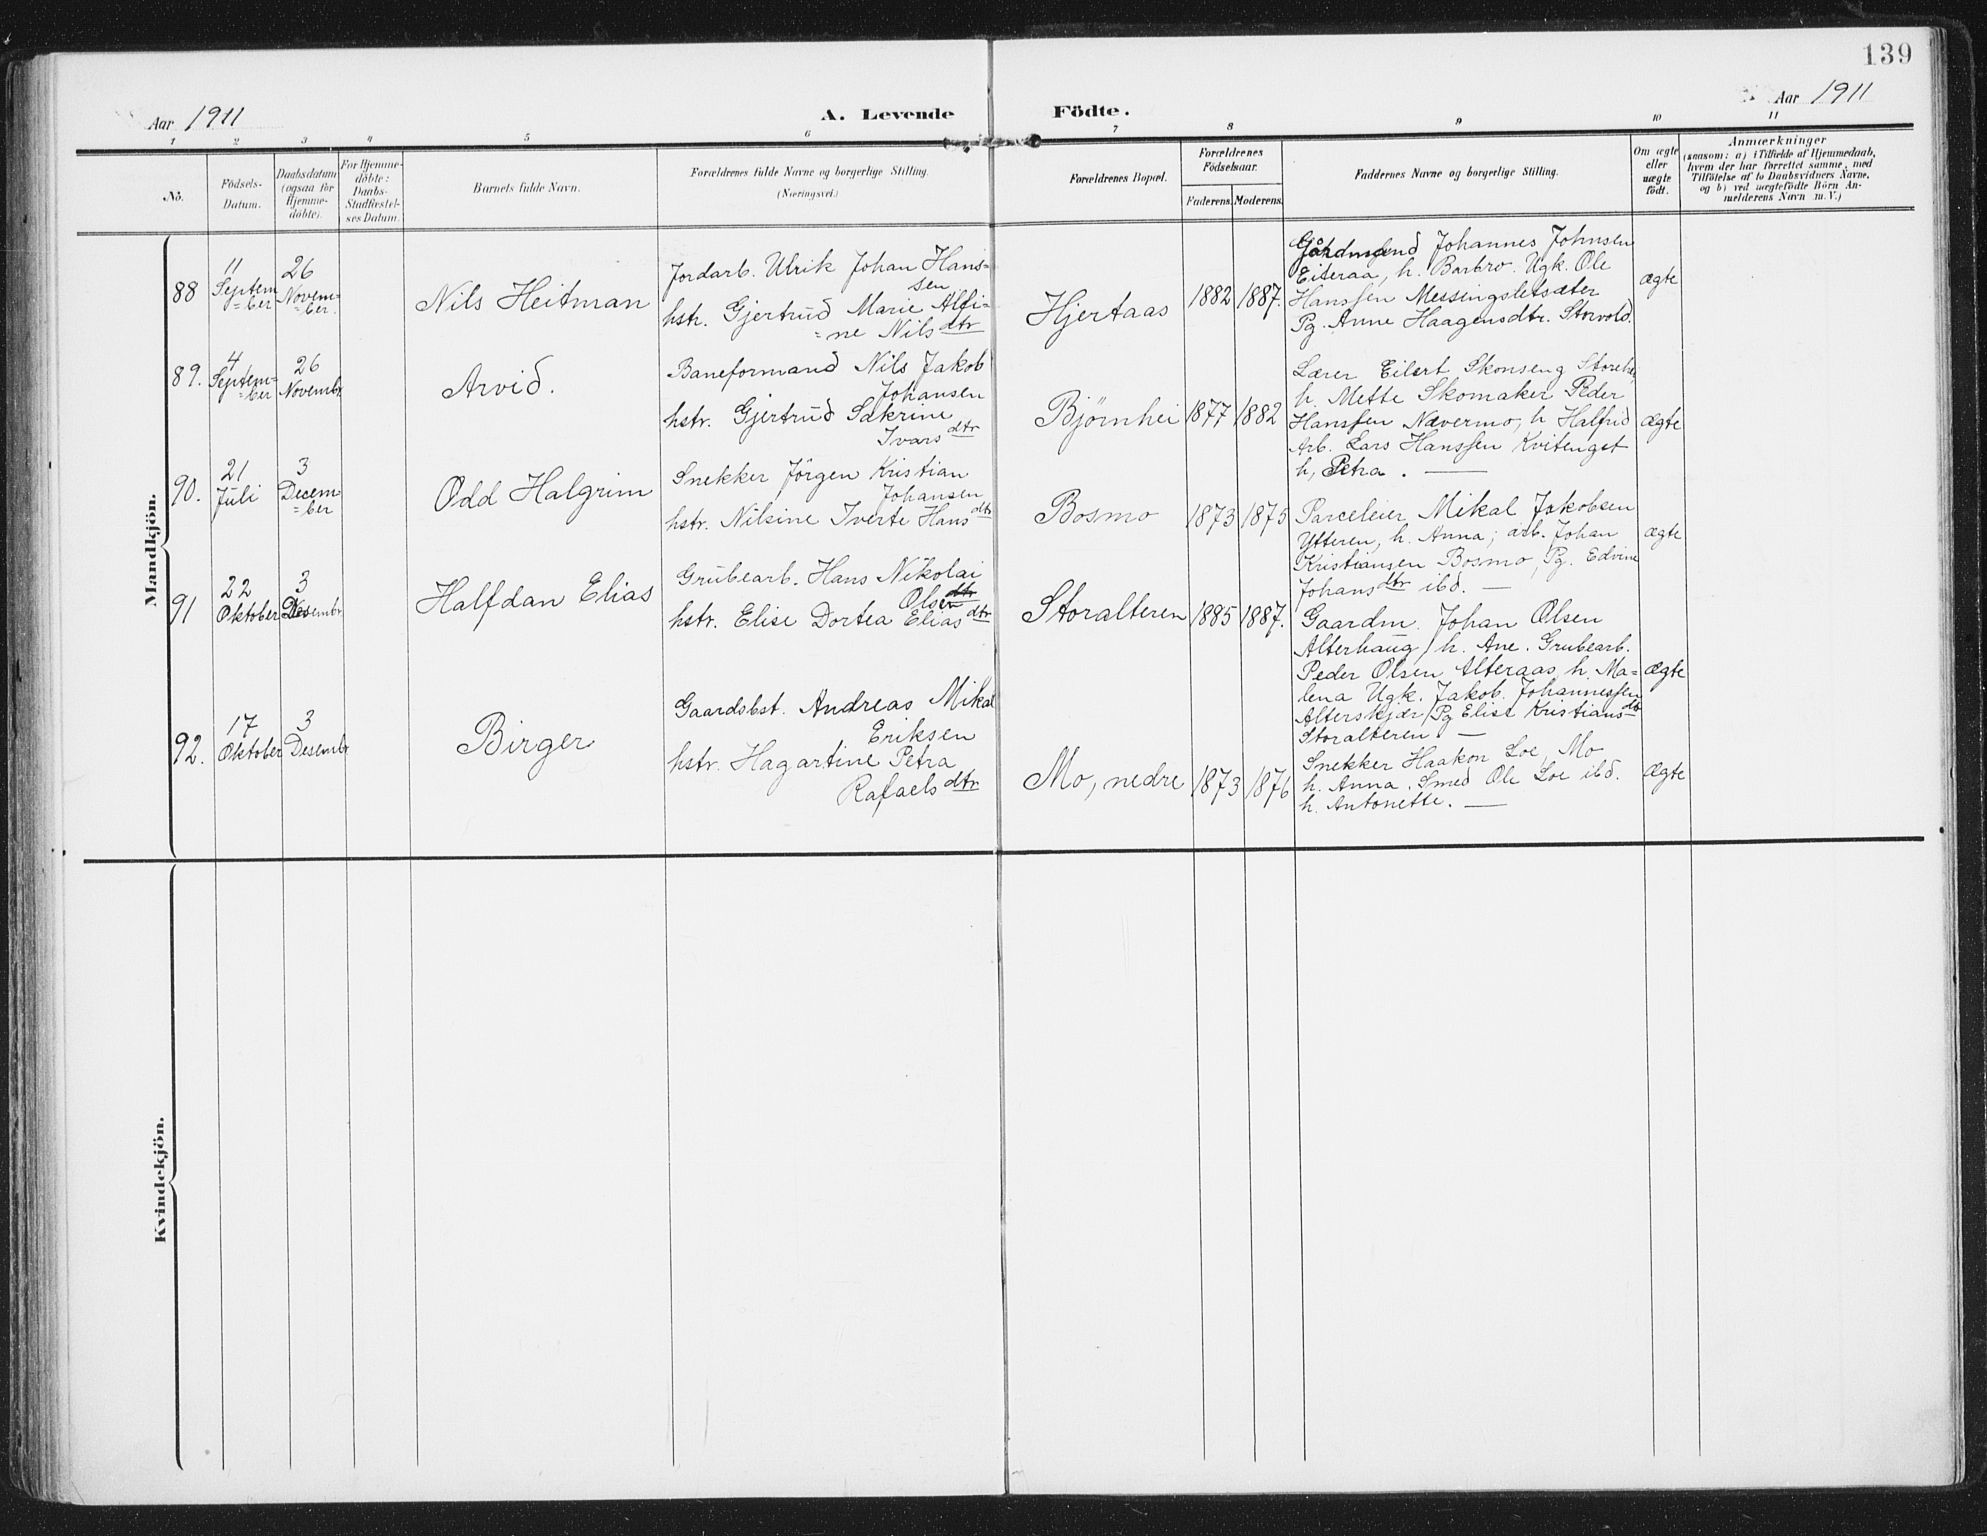 139
Aar 1911
A. Levende Födte.
Aar 1911
1 2 3 4 5 6 7 8 9 10 11
No.
Födsels-
Datum.
Daabsdatum
(ogsaa for
Hjemme-
döbte).
For Hjemme-
döbte:
Daabs-
Stadfæstel-
ses Datum.
Barnets fulde Navn.
Forældrenes fulde Navne og borgerlige Stilling.
(Næringsvei.)
Forældrenes Bopæl.
Forældrenes
Födselsaar.
Faderens.
Moderens.
Faddernes Navne og borgerlige Stilling.
Om ægte
eller
uægte
födt.
Anmærkninger
(saasom: a) i Tilfælde af Hjemmedaab,
hvem der har forrettet samme, med
Tilföielse af to Daabsvidners Navne,
og b) ved uægtefödte Börn An-
melderens Navn m. V.)
Mandkjön.
88
11
Septem
=ber
26
Novem=
=ber.
Nils Heitman
Jordarb. Ulrik Johan Hans=
sen
hstr. Gjertrud Marie Alfi=
=ne Nilsdtr
Hjertaas
1882 1887.
Johannes Johnsen
Eiteraa, h. Barbro. Ugk. Ole
Hanssen Messingsletsæter
Pg. Anne Haagensdtr. Storvold.
ægte
89.
4
Septem=
=ber
26
Novembr
Arvid.
Baneformand Nils Jakob
Johansen
hstr. Gjertrud Sakrine
Ivarsdtr
Bjørnhei
1877 1882
Lærer Eilert Skonseng
h. Mette Skomaker Peder
Hanssen Nævermo, h Halfrid
Arb. Lars Hanssen Kvitenget
h, Petra. —
ægte
90.
21
Juli
3
Decem
=ber
Odd Halgrim
Snekker Jörgen Kristian
Johansen
hstr. Nilsine Iverte Hansdtr
Bosmo
1873 1875
Parceleier Mikal Jakobsen
Ytteren, h. Anna; arb. Johan
Kristiansen Bosmo, Pg. Edvine
Johansdtr ibd. —
ægte
91
22
Oktober
3
Desembr
Halfdan Elias
Grubearb. Hans Nikolai
Olsen
hstr. Elise Dortea Eliasdtr
Storalteren
1885 1887.
Gaardm. Johan Olsen
Alterhaug / h. Ane. Grubearb.
Peder Olsen Alteraas h. Ma=
lena Ugk. Jakob Johannessen
Alterskjær / Pg Elise Kristiansdtr
Storalteren —
ægte
92.
17
Oktober
3
Desembr
Birger
Gaardsbst. Andreas Mikal
Eriksen
hstr. Hagartine Petra
Rafaelsdtr
Mo, nedre
1873 1876
Snekker Haakon Loe, Mo
h. Anna. Smed Ole Loe ibd.
h. Antonette. —
ægte
Kvindekjön.